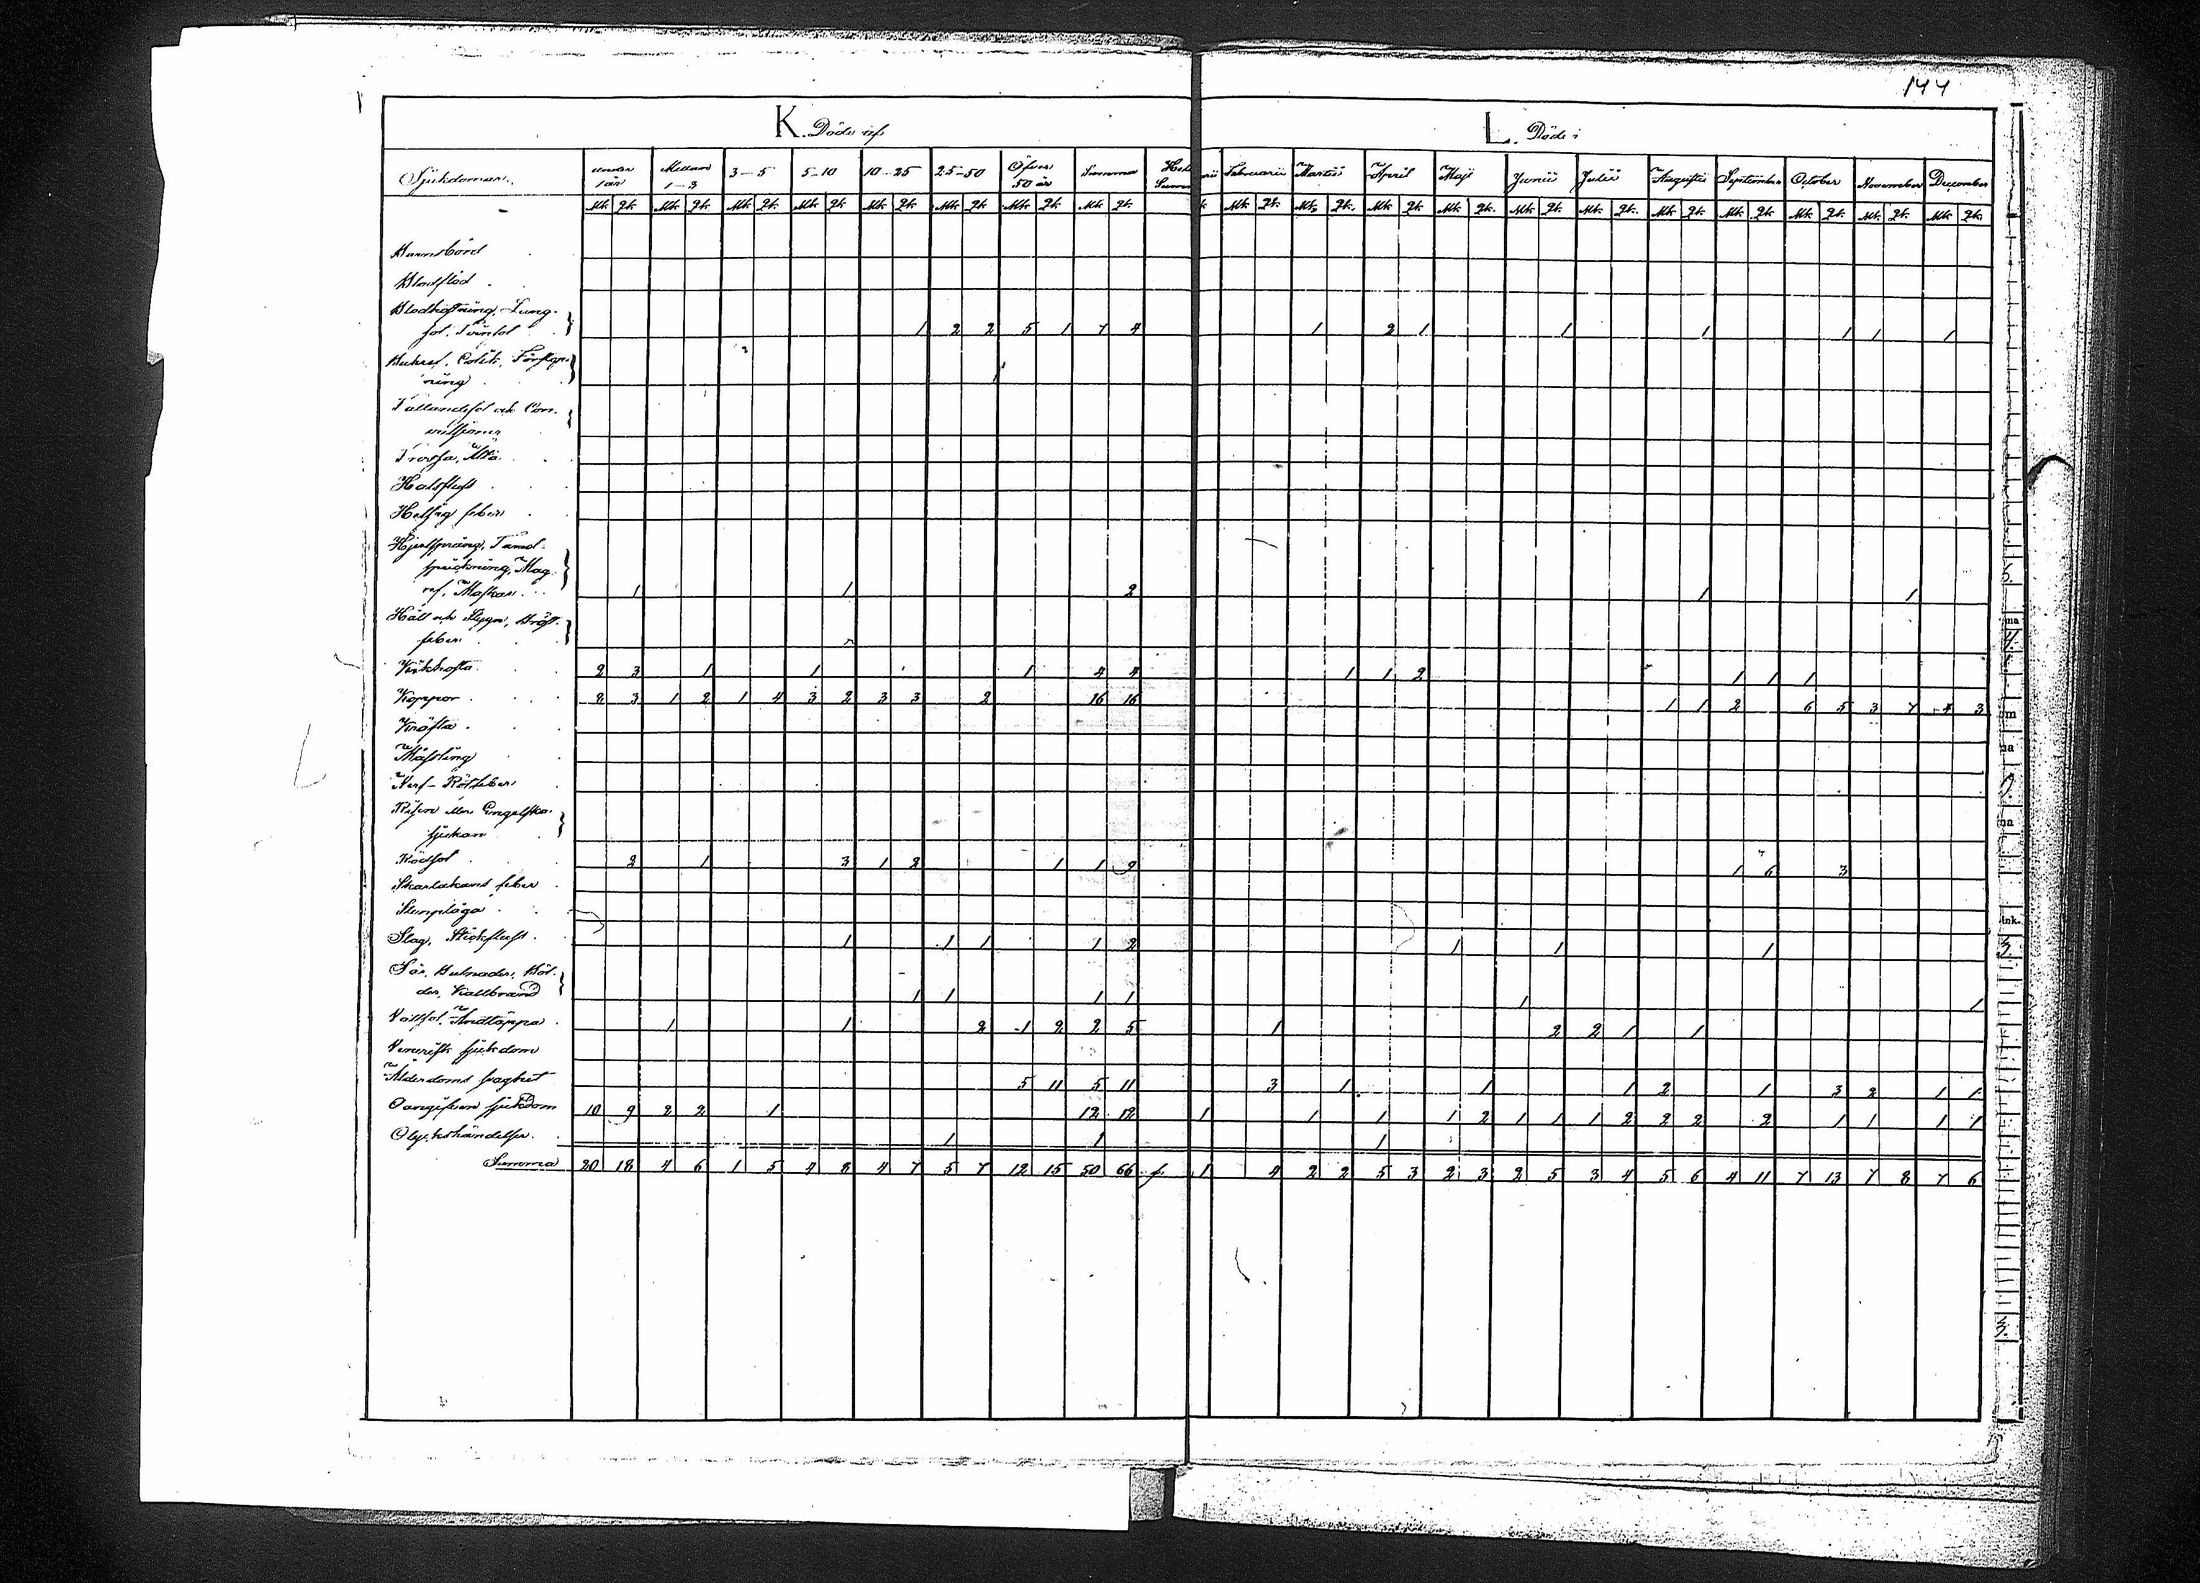 144
K. Döde af
L. Döde i
Sjukdomar. under 1 år Mellan 1-3 3-5 5-10 10-25 25-50 Öfver 50 år Summa Februarii Martii April Maji Junii Julii Augusti September October November December
Mk. Qk. Mk. Qk. Mk. Qk. Mk. Qk. Mk. Qk. Mk. Qk. Mk. Qk. Mk. Qk. Mk. Qk. Mk. Qk. Mk. Qk. Mk. Qk. Mk. Qk. Mk. Qk. Mk. Qk. Mk. Qk. Mk. Qk. Mk. Qk. Mk. Qk.
Barnsbörd
Blodflöd
Blodhostning, Lung-
sot, Tvinsot 1 2 2 5 1 7 4 1 2 1 1 1 1 1 1
Bukref, Colik, Förstopp-
ning
Fallandesot och Con-
vulsioner
Frossa, Älta
Halsfluss
Hetsig feber
Hjertsprång, Tand-
sprickning, Mag-
ref, Maskar 1 1 2 1 1
Håll och Stygn, Bröst-
feber
Kikhosta 2 3 1 1 1 4 4 1 1 2 1 1 1
Koppor 8 3 1 2 1 4 3 2 3 3 2 16 16 1 1 2 6 5 3 7 4 3
Kräfta
Mässling
Nerf- Rötfeber
Risen eller Engelska
sjukan
Rödsot 2 1 3 1 2 1 1 9 1 6 3
Skarlakans feber
Stenplåga
Slag, Stickfluss 1 1 1 1 2 1 1 1
Sår, Bulnader, Böl-
der, Kallbrand 1 1 1 1 1 1
Vattsot, Andtäppa 1 1 2 1 2 2 5 1 2 2 1 1
Venerisk sjukdom
Ålderdoms svaghet 5 11 5 11 3 1 1 1 2 1 3 2 1 1
Oangifven sjukdom 10 9 2 2 1 12 12 1 1 1 1 2 1 1 1 2 2 2 2 1 1 1 1
Olyckshändelser 1 1 1
Summa 20 18 4 6 1 5 4 8 4 7 5 7 12 15 50 66 1 4 2 2 5 3 2 3 2 5 3 4 5 6 4 11 7 13 7 8 7 6